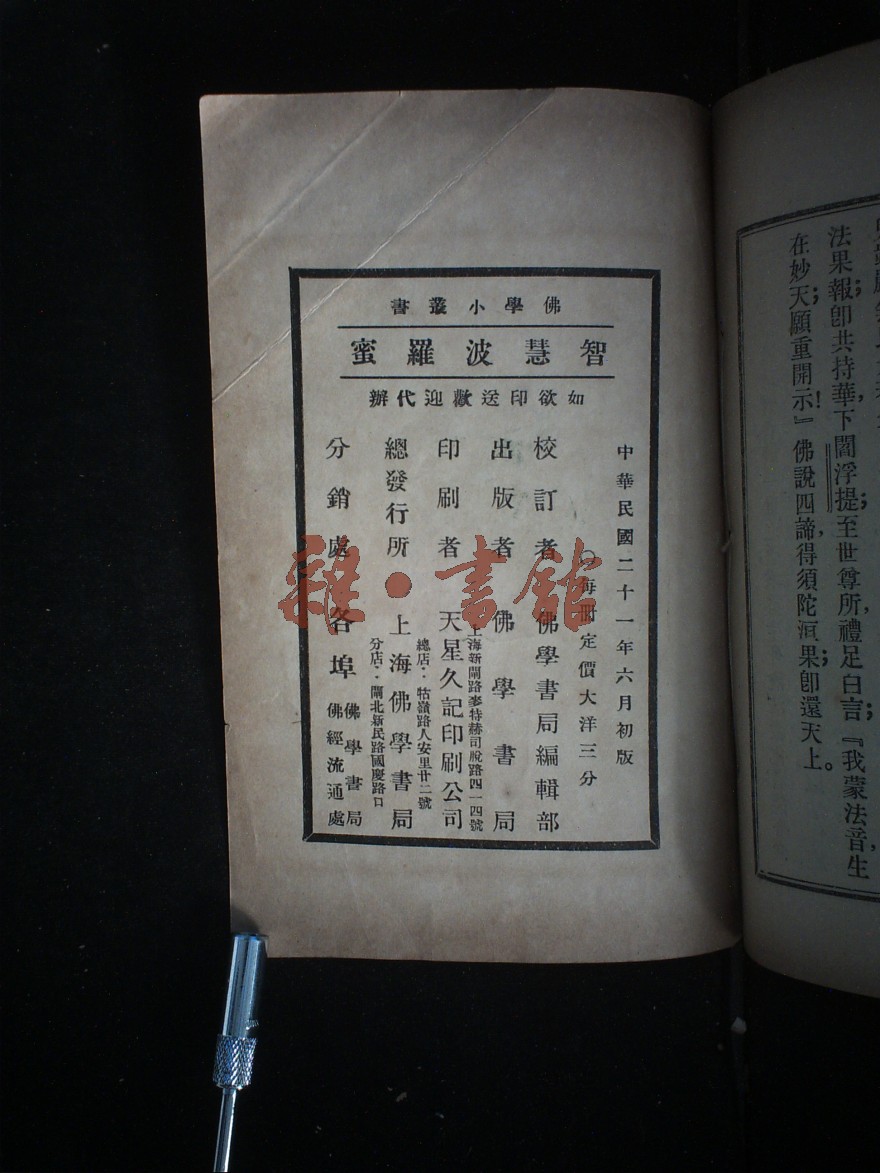 法果報卽共持華,下閻浮提;至世尊所,禮足白言;『我蒙法音,生
在妙天;願重開示!』佛說四諦,得須陀洹果;卽還天上。
佛學小叢書
智慧波羅蜜
如欲印送歡迎代辦
中華民國二十一年六月初版
○每冊定價大洋三分
校訂者 佛學書局編輯部
出版者 佛學書局
上海新閘路麥特赫司脫路四一四號
印刷者 天星久記印刷公司
總店:牯嶺路人安里廿二號
總發行所 上海佛學書局
分店:閘北新民路國慶路口
分銷處 各埠 佛學書局
佛經流通處
雜·書館